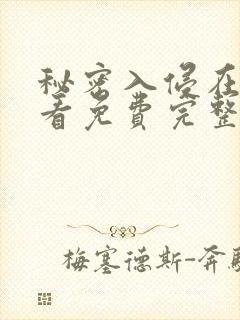 秘密入侵在
看免费完整
梅塞德斯-奔驰